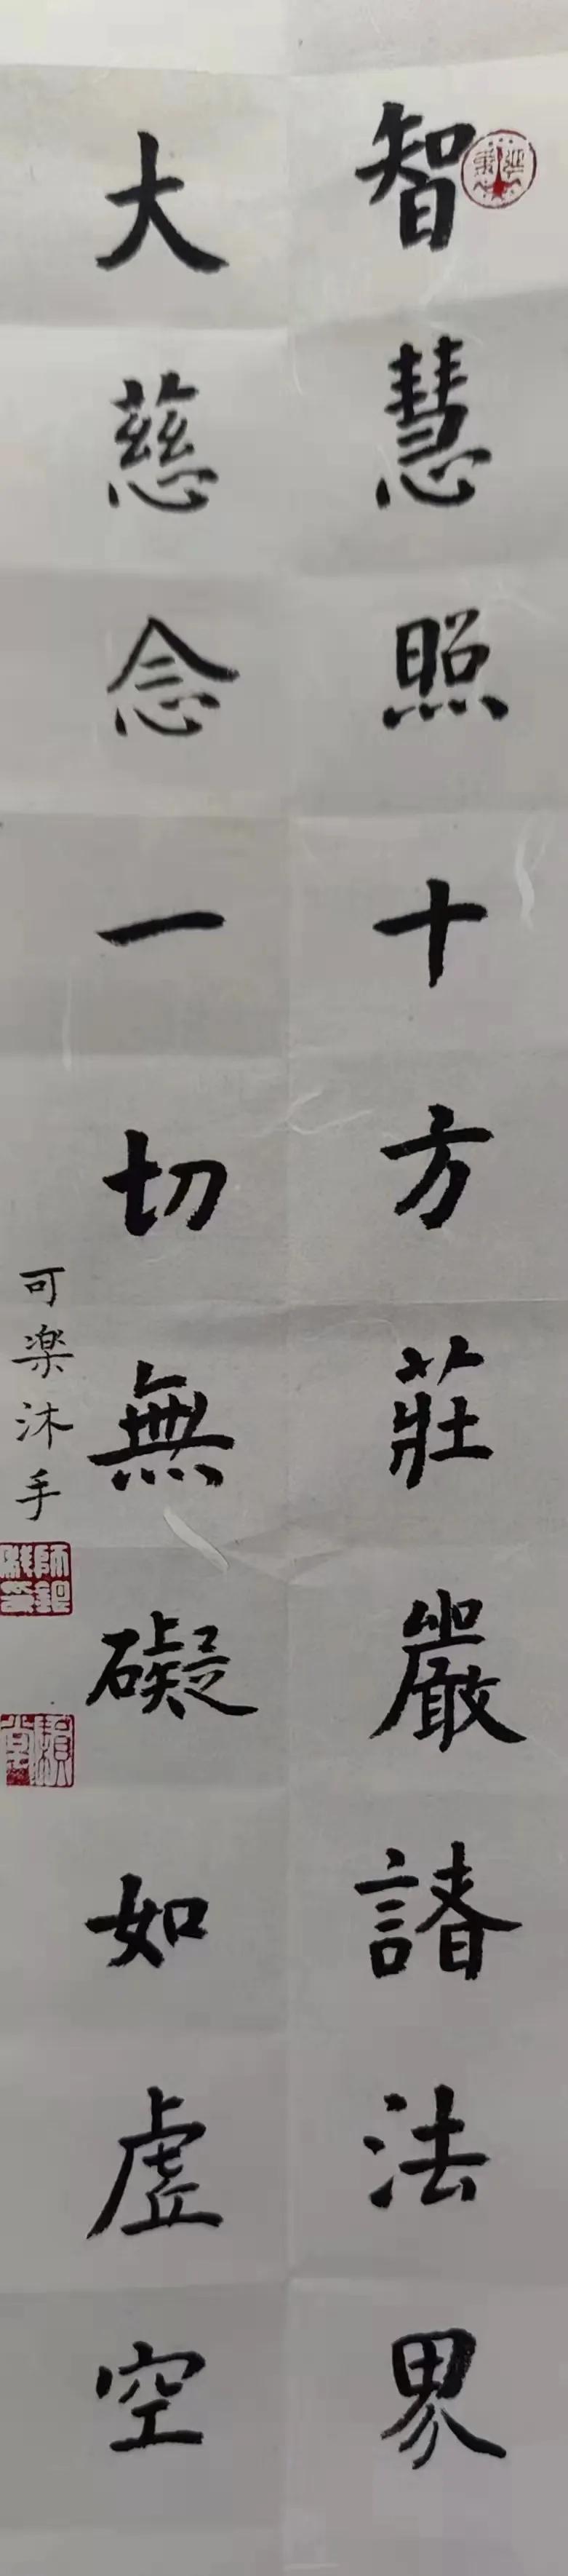 智慧照十方莊嚴諸法界
大慈念一切無礙如虛空
可樂沐手